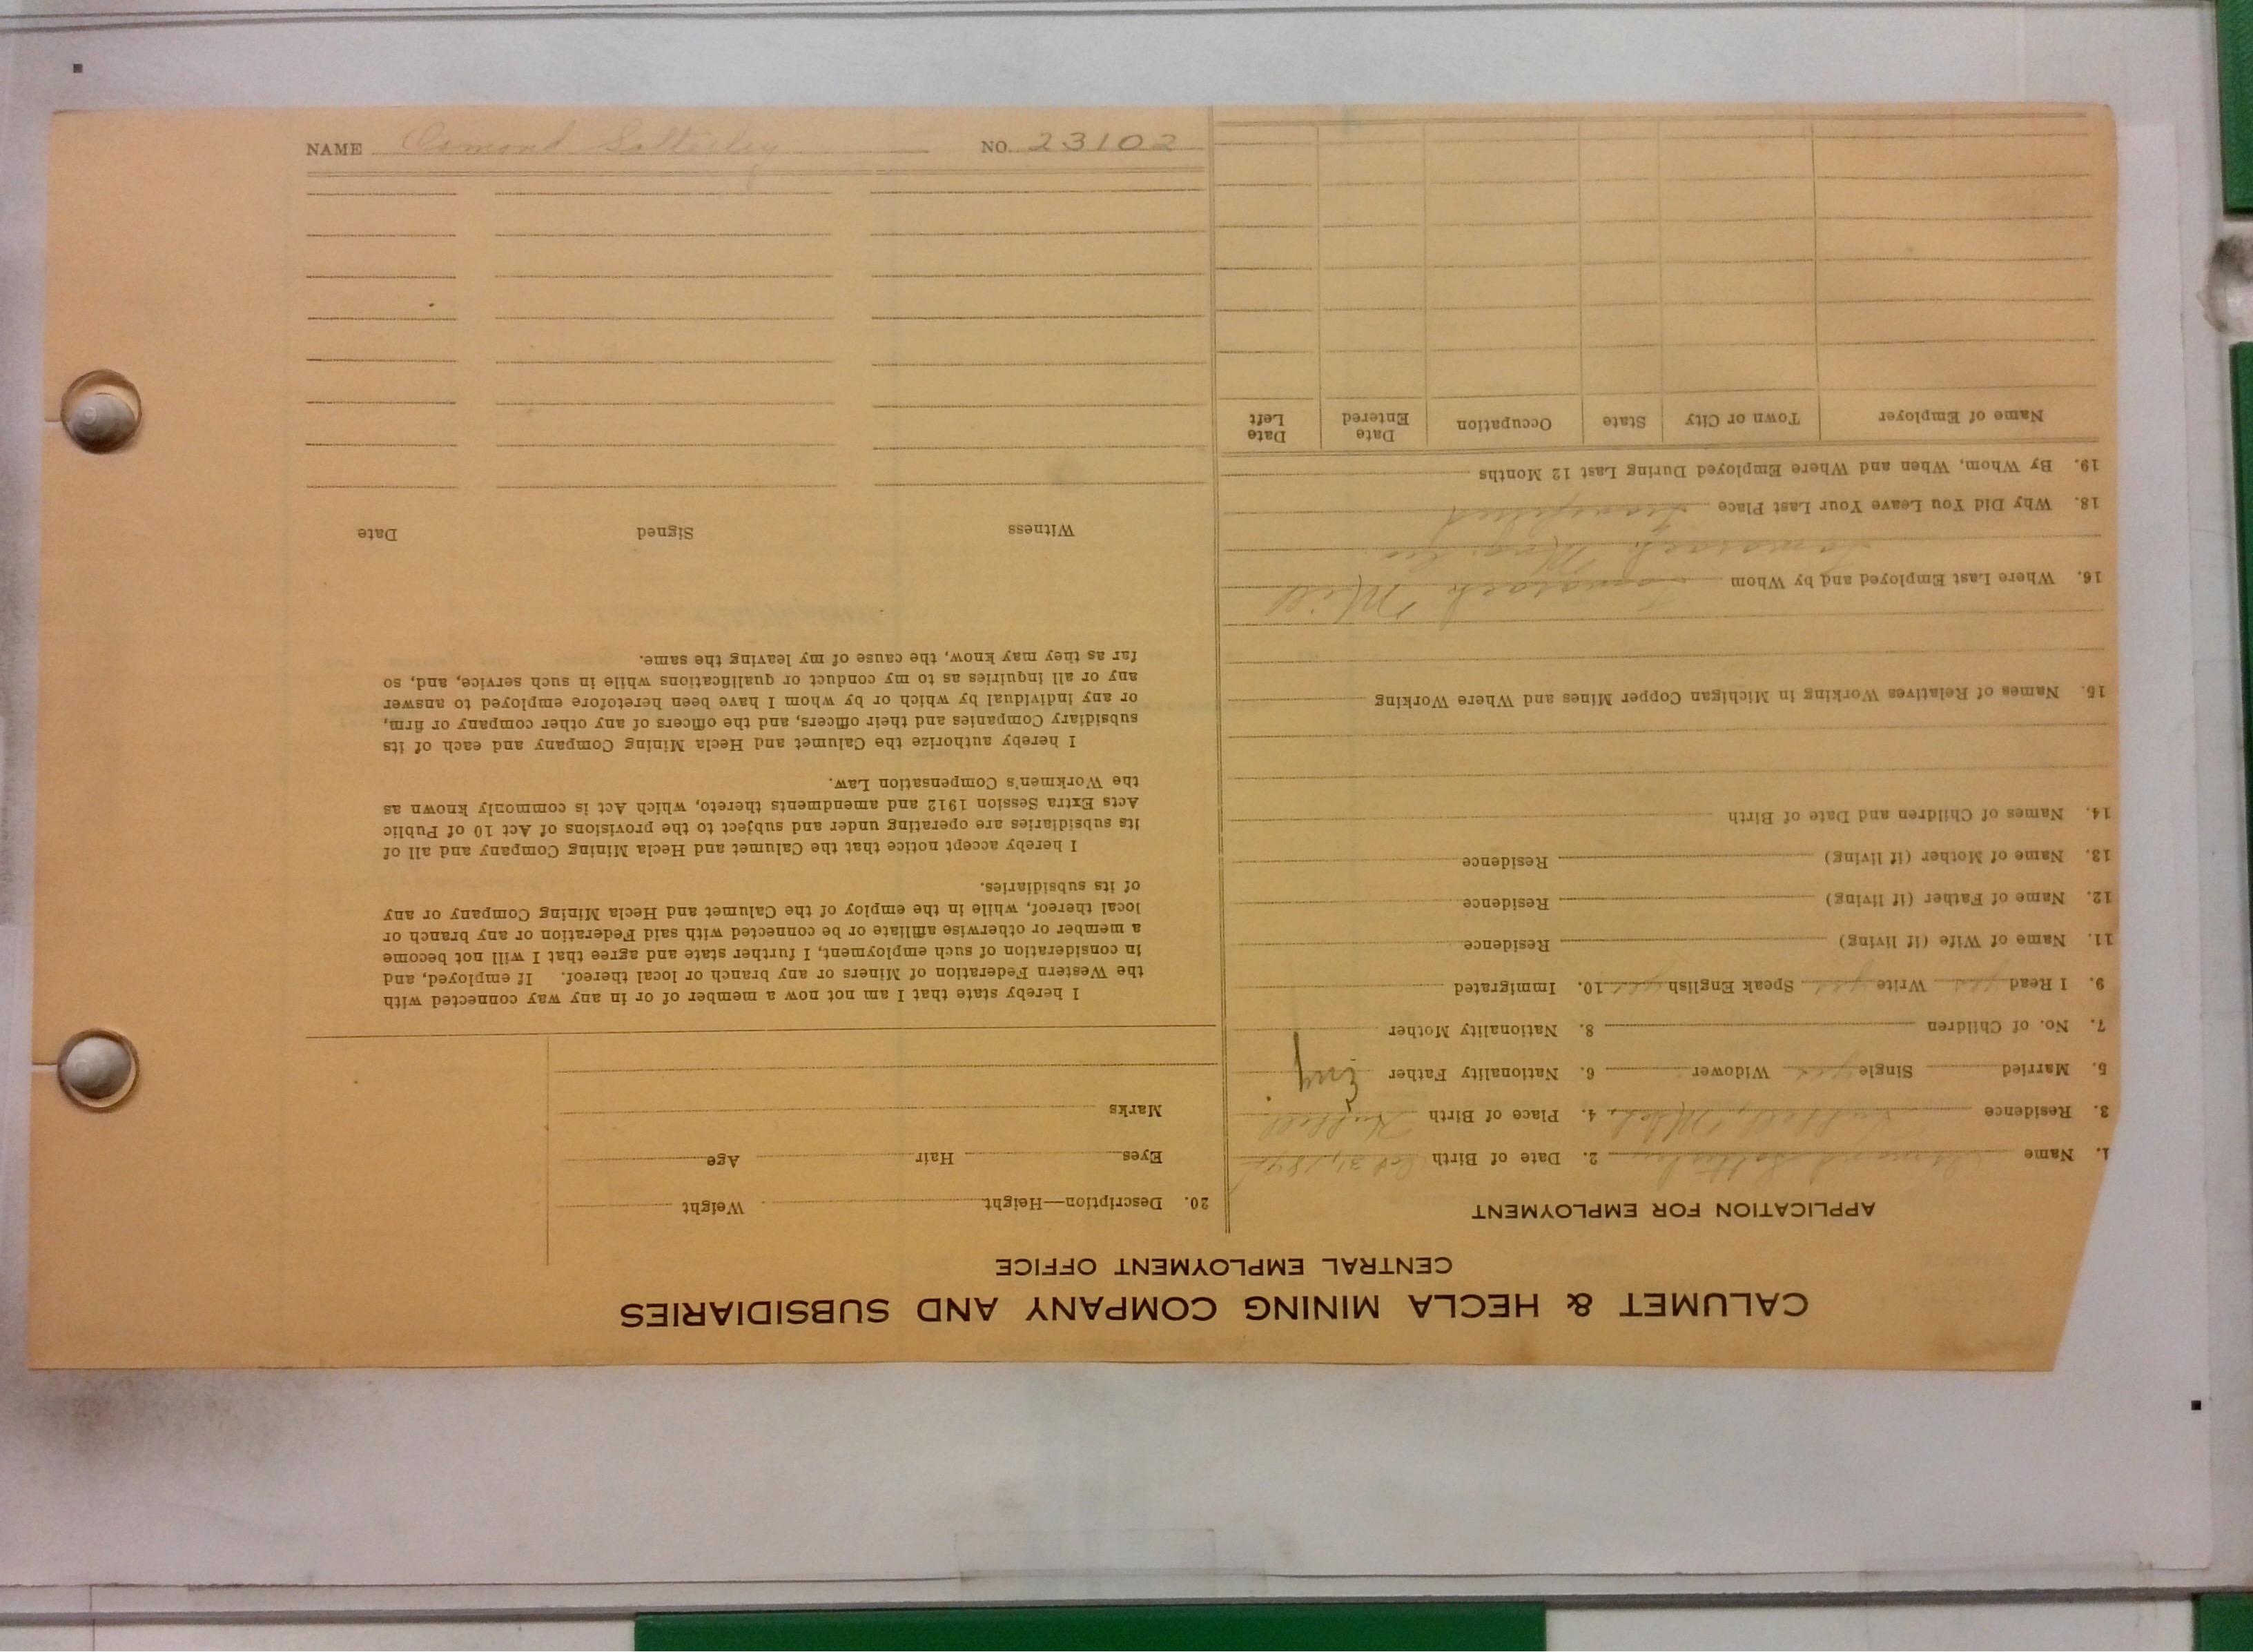 CALUMET & HECLA MINING COMPANY AND SUBSIDIARIES
CENTRAL EMPLOYMENT OFFICE
APPLICATION FOR EMPLOYMENT
1. Name Osmond 2. Date of Birth Oct 31, 
3. Residence Hubbell, Mich. 4. Place of Birth Hubbell
5. Married Single yes Widower 6. Nationality Father Eng.
7. No. of Children 8. Nationality Mother
9. I Read yes Write yes Speak English yes 10. Immigrated
11. Name of Wife (if living) Residence
12. Name of Father (if living) Residence
13. Name of Mother (if living) Residence
14. Names of Children and Date of Birth
15. Names of Relatives Working in Michigan Copper Mines and Where Working
16. Where Last Employed and by Whom Tamarack Mill
Tamarack Mng. Co.
18. Why Did You Leave Your Last Place Transferred
19. By Whom, When and Where Employed During Last 12 Months
Name of Employer Town or City State Occupation Date Entered Date Left
20. Description—Height Weight
Eyes Hair Age
Marks
I hereby state that I am not now a member of or in any way connected with
the Western Federation of Miners or any branch or local thereof. If employed, and
in consideration of such employment, I further state and agree that I will not become
a member or otherwise affiliate or be connected with said Federation or any branch or
local thereof, while in the employ of the Calumet and Hecla Mining Company or any
of its subsidiaries.
I hereby accept notice that the Calumet and Hecla Mining Company and all of
its subsidiaries are operating under and subject to the provisions of Act 10 of Public
Acts Extra Session 1912 and amendments thereto, which Act is commonly known as
the Workmen's Compensation Law.
I hereby authorize the Calumet and Hecla Mining Company and each of its
subsidiary Companies and their officers, and the officers of any other company or firm,
or any individual by which or by whom I have been heretofore employed to answer
any or all inquiries as to my conduct or qualifications while in such service, and, so
far as they may know, the cause of my leaving the same.
Witness Signed Date
NAME Osmond NO. 23102